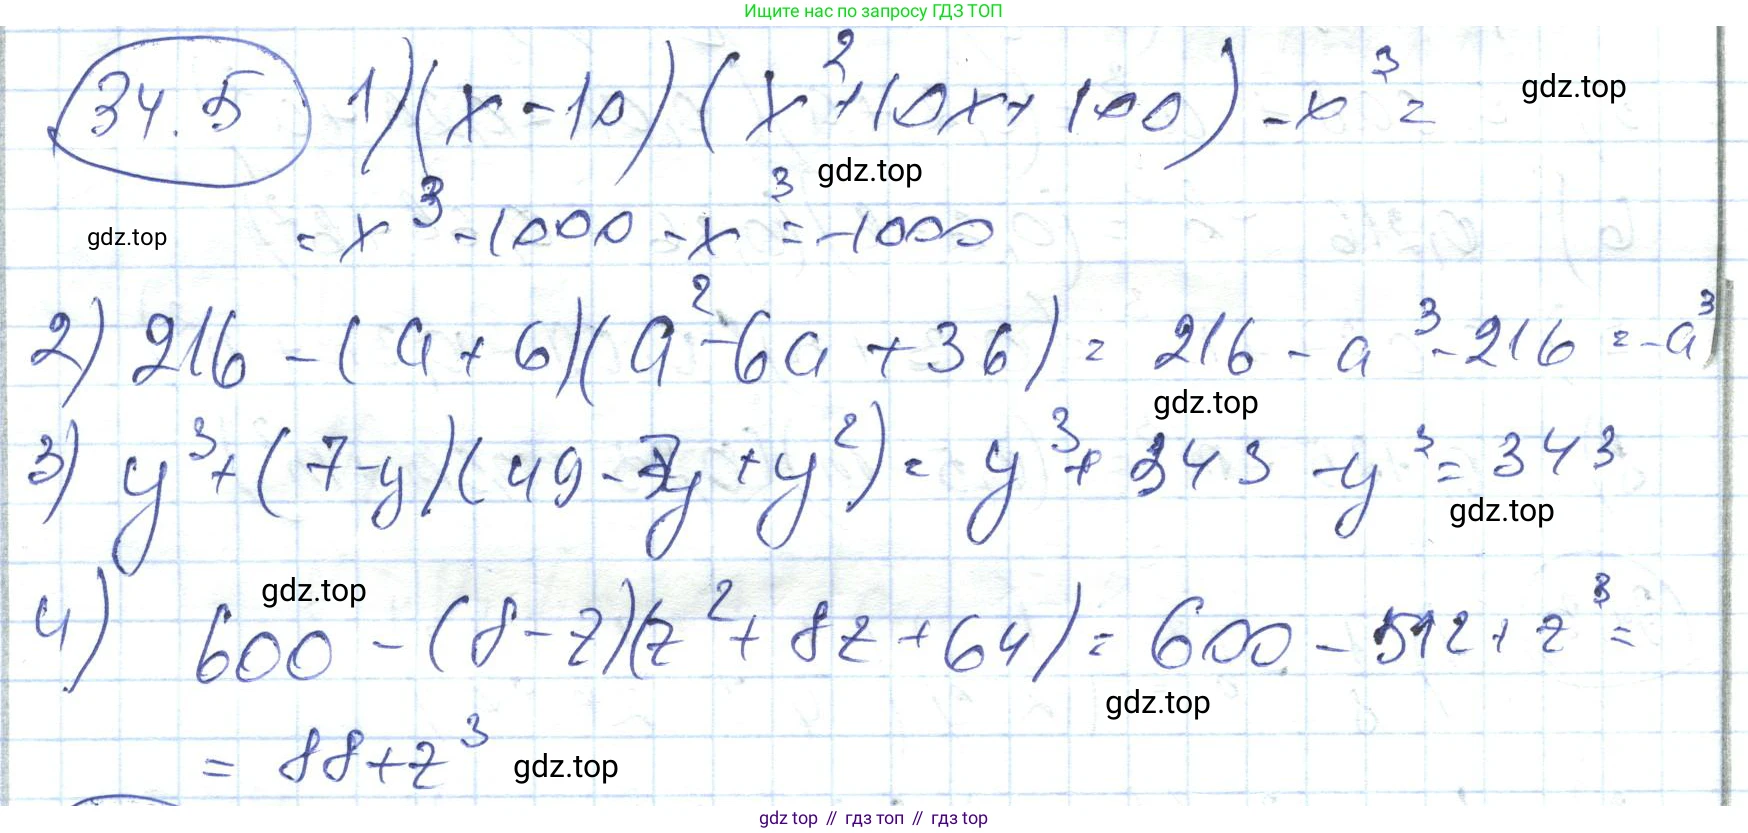 Ищите нас по запросу ГДЗ ТОП
34.5 1) (x - 10) (x² + 10x + 100) - x³ =
gdz.top
gdz.top
= x³ - 1000 - x³ = -1000
gdz.top
2) 216 - (a + 6)(a² - 6a + 36) = 216 - a³ - 216 = -a³
gdz.top
3) y³ + (7 - y)(49 - 7y + y²) = y³ + 343 - y³ = 343
gdz.top
gdz.top
4) 600 - (8 - z)(z² + 8z + 64) = 600 - 512 + z³ =
gdz.top
= 88 + z³
gdz.top
gdz top // гдз топ // gdz top